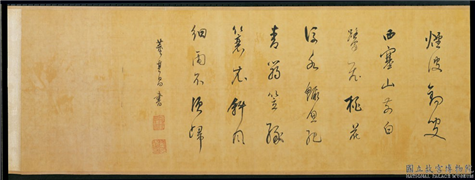 煙波釣叟
西塞山前白
鷺飛桃花
流水鱖魚肥
青篛笠綠
蓑衣斜風
細雨不須歸
董其昌書
國立故宮博物院
NATIONAL PALACE MUSEUM